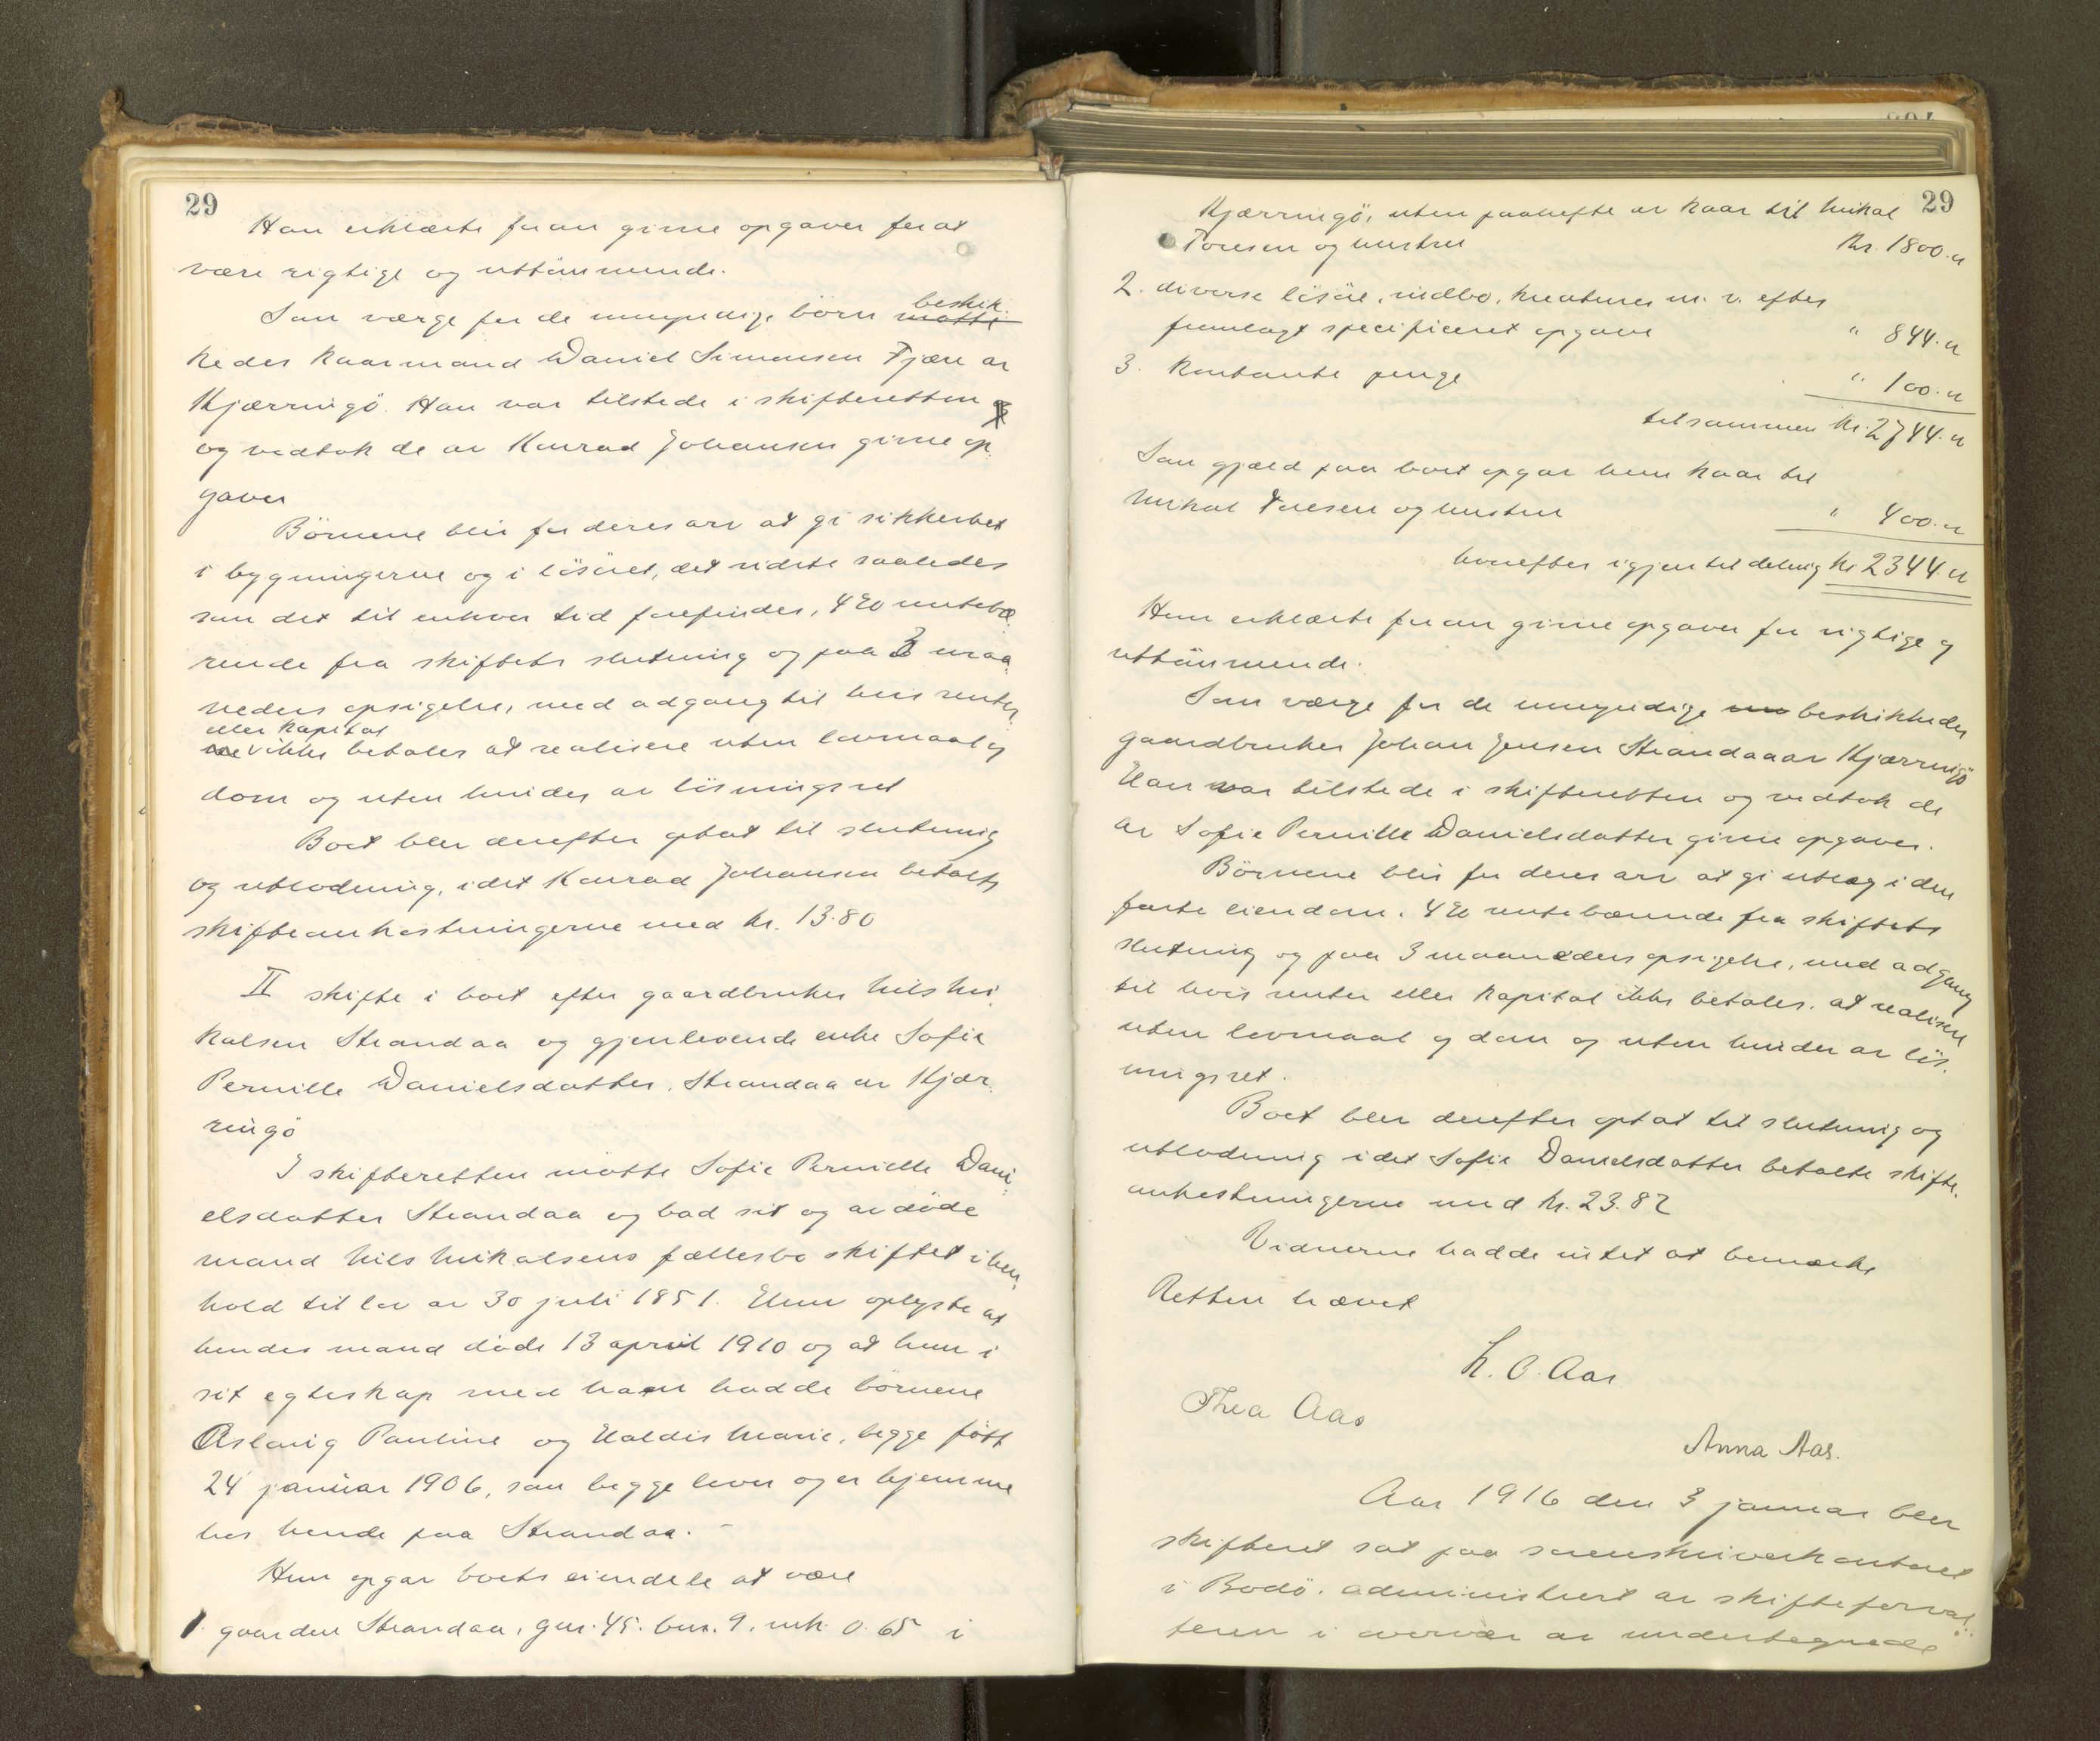 29
Han erklærte foran givne opgaver for at
være rigtige og uttömmende.
Som værge for de umyndige börn mötte beskik-
kedes kaarmand Daniel Simonsen Fjære av
Kjærringö. Han var tilstede i skifteretten
og vedtok de av Konrad Johansen givne op-
gaver
Börnene blir for deres arv at gi sikkerhet
i bygningerne og i lösöret, det sidste saaledes
som det til enhver tid forefindes, 4 % rentebæ-
rende fra skiftets slutning og paa 3 maa-
neders opsigelse, med adgang til hvis renter
eller kapital
ikke betales at realisere uten lovmaal og
dom og uten hinder av lösningsret
Boet blev derefter optat til slutning
og utlodning, idet Konrad Johansen betalte
skifteomkostningerne med kr. 13.80
II skifte i boet efter gaardbruker Nils Mi-
kalsen Strandaa og gjenlevende enke Sofie
Pernille Danielsdatter, Strandaa av Kjær-
ringö
I skifteretten mötte Sofie Pernille Dani-
elsdatter Strandaa og bad sit og avdöde
mand Nils Mikalsens fællesbo skiftet i hen-
hold til lov av 30 juli 1851. Hun oplyste at
hendes mand döde 13 april 1910 og at hun i
sit egteskap med ham hadde börnene
Aslaug Pauline og Haldis Marie, begge född
24 januar 1906, som begge lever og er hjemme
hos hende paa Strandaa.
Hun opgav boets eiendele at være
1. gaarden Strandaa, gnr. 45. bnr. 9. mk. 0.65 i
29
Kjærringö, uten paahefte av kaar til Mikal
Toresen og hustru Kr. 1800.„
2. diverse lösöre, indbo, kreaturer m. v. efter
fremlagt specificeret opgave " 844.„
3. Kontante penge " 100.„
tilsammen kr. 2744.„
Som gjæld paa boet opgav hun kaar til
Mikal Toresen og hustru " 400.„
hvorefter igjen til deling kr. 2344.„
Hun erklærte foran givne opgaver for rigtige og
uttömmende.
Som værge for de umyndige beskikkedes
gaardbruker Johan Jensen Strandaa av Kjærringö
Han var tilstede i skifteretten og vedtok de
av Sofie Pernille Danielsdatter givne opgaver.
Börnene blir for deres arv at gi utlæg i den
faste eiendom, 4 % rentebærende fra skiftets
slutning og paa 3 maaneders opsigelse, med adgang
til hvis renter eller kapital ikke betales, at realisere
uten lovmaal og dom og uten hinder av lös-
ningsret.
Boet blev derefter optat til slutning og
utlodning idet Sofie Danielsdatter betalte skifte-
omkostningerne med kr. 23.82
Vidnerne hadde intet at bemærke
Retten hævet
L. O. Aas
Thea Aas
Anna Aas.
Aar 1916 den 3 januar blev
skifteret sat paa sorenskriverkontoret
i Bodö, administrert av skifteforval-
teren i overvær av undertegnede